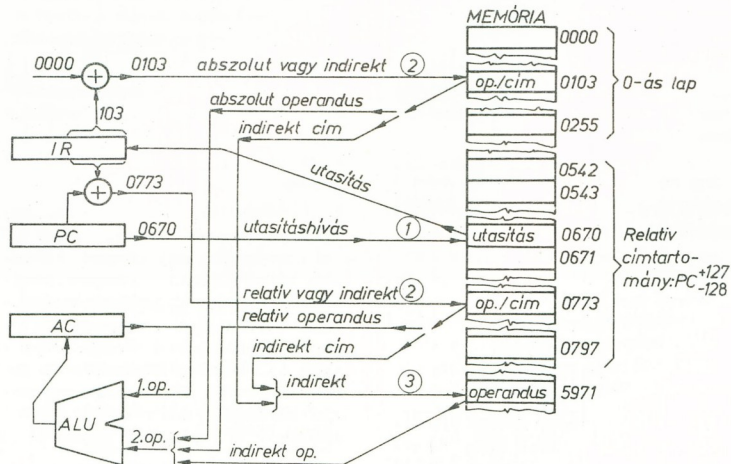 MEMÓRIA
0000
0000
0103
abszolut vagy indirekt
2
op./cím
0103
0-ás lap
103
abszolut operandus
indirekt cím
0255
IR
utasítás
0542
0543
0773
PC
0670
utasításhívás
1
utasítás
0670
0671
Relatív
címtarto-
mány:PC +127
-128
relatív vagy indirekt
2
op./cím
0773
AC
relatív operandus
indirekt cím
0797
1.op.
indirekt
3
operandus
5971
ALU
2.op.
indirekt op.